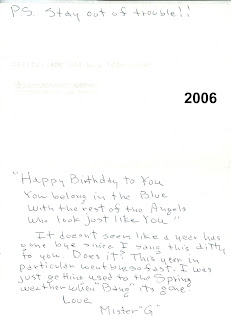 P.S. Stay out of trouble!!
2006
"Happy Birthday to You
You belong in the Blue
With the rest of the Angels
who look just like You"
It doesn't seem like a year has
gone bye since I sang this ditty
to you. Does it? This year in
particular went bye so fast. I was
just getting used to the Spring
weather when "Bang" its gone
Love
Mister "G"